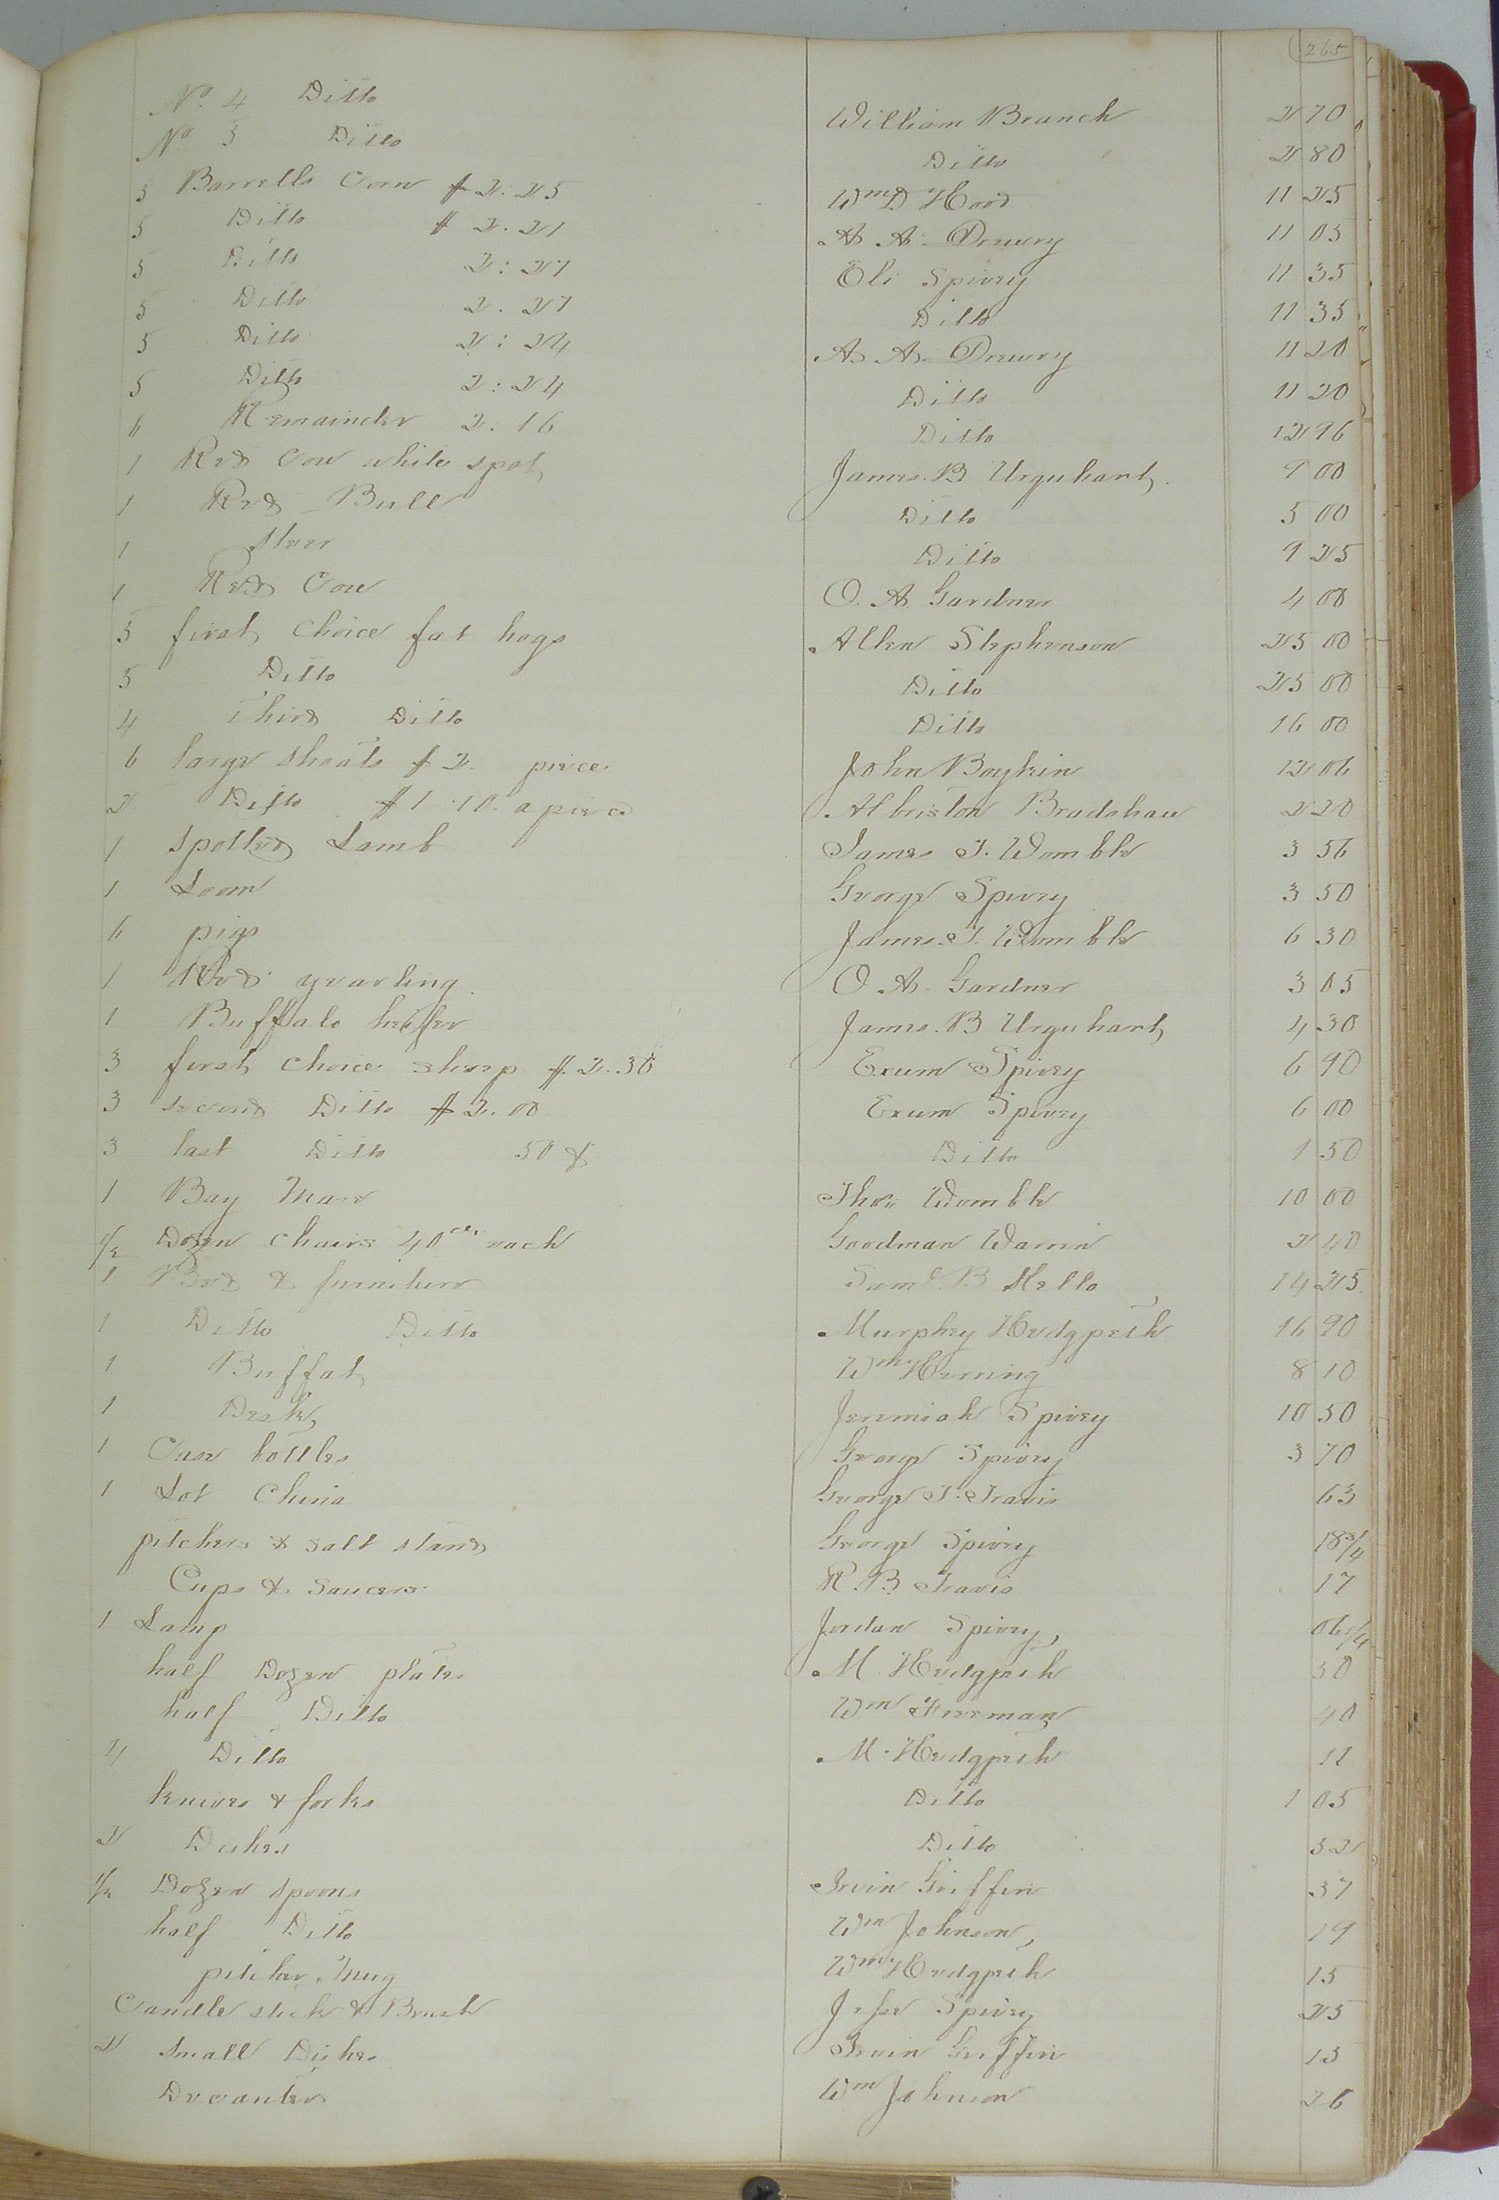 265
No. 4 Ditto William Branch 2 70
No 5 Ditto Ditto 2 80
5 Barrells Corn $2.25 Wm D Hood 11 25
5 Ditto $2.21 A. A. Drewry 11 05
5 Ditto 2:27 Eli Spivey 11 35
5 Ditto 2.27 Ditto 11 35
5 Ditto 2:24 A. A. Drewry 11 20
5 Ditto 2:24 Ditto 11 20
6 Remainder 2.16 Ditto 12 96
1 Red Cow white spot James. B Urquhart. 9 00
1 Red Bull Ditto 5 00
1 Steer Ditto 9 25
1 Red Cow O. A. Gardner 4 00
5 first choice fat hogs Allen Stephenson 25 00
5 Ditto Ditto 25 00
4 third Ditto Ditto 16 00
6 large Shoats $2. piece John Boykin 12 06
2 Ditto $1.10. apiece Albriston Bradshaw 2 20
1 Spotted Lamb James T. Womble 3 56
1 Loom George Spivey 3 50
6 pigs James. T. Womble 6 30
1 Red yearling O. A. Gardner 3 05
1 Buffalo heifer James. B Urquhart 4 30
3 first choice sheep $.2.30 Exum Spivey 6 90
3 second Ditto $2.00 Exum Spivey 6 00
3 last Ditto 50 Ditto 1 50
1 Bay Mare Thos Womble 10 00
1/2 Dozen Chairs 40cts each Goodman Warrin 2 40
1 Bed & furniture Saml. B Kello 14 25
1 Ditto Ditto Murphey Hedgpeth 16 90
1 Buffat Wm Herring 8 10
1 Desk, Jeremiah Spivey 10 50
1 Case bottles George Spivey 3 70
1 Lot China George T. Travis 63
pitchers & salt stand George Spivey 18 3/4
Cups & Saucers R. B. Travis 17
1 Lamp Jordan Spivey, 06 1/4
half Dozen plates M. Hedgpeth 50
half Ditto Wm Freeman 40
4 Ditto M. Hedgpeth 11
knives & forks Ditto 1 05
2 Dishes Ditto 32
1/2 Dozen spoons Irvin Griffin 37
half Ditto Wm Johnson, 19
pitcher, Mug Wm Hedgpeth 15
Candle stick & Brush Jesse Spivey 25
2 Small Dishes Irvin Griffin 13
Decanters Wm Johnson 26